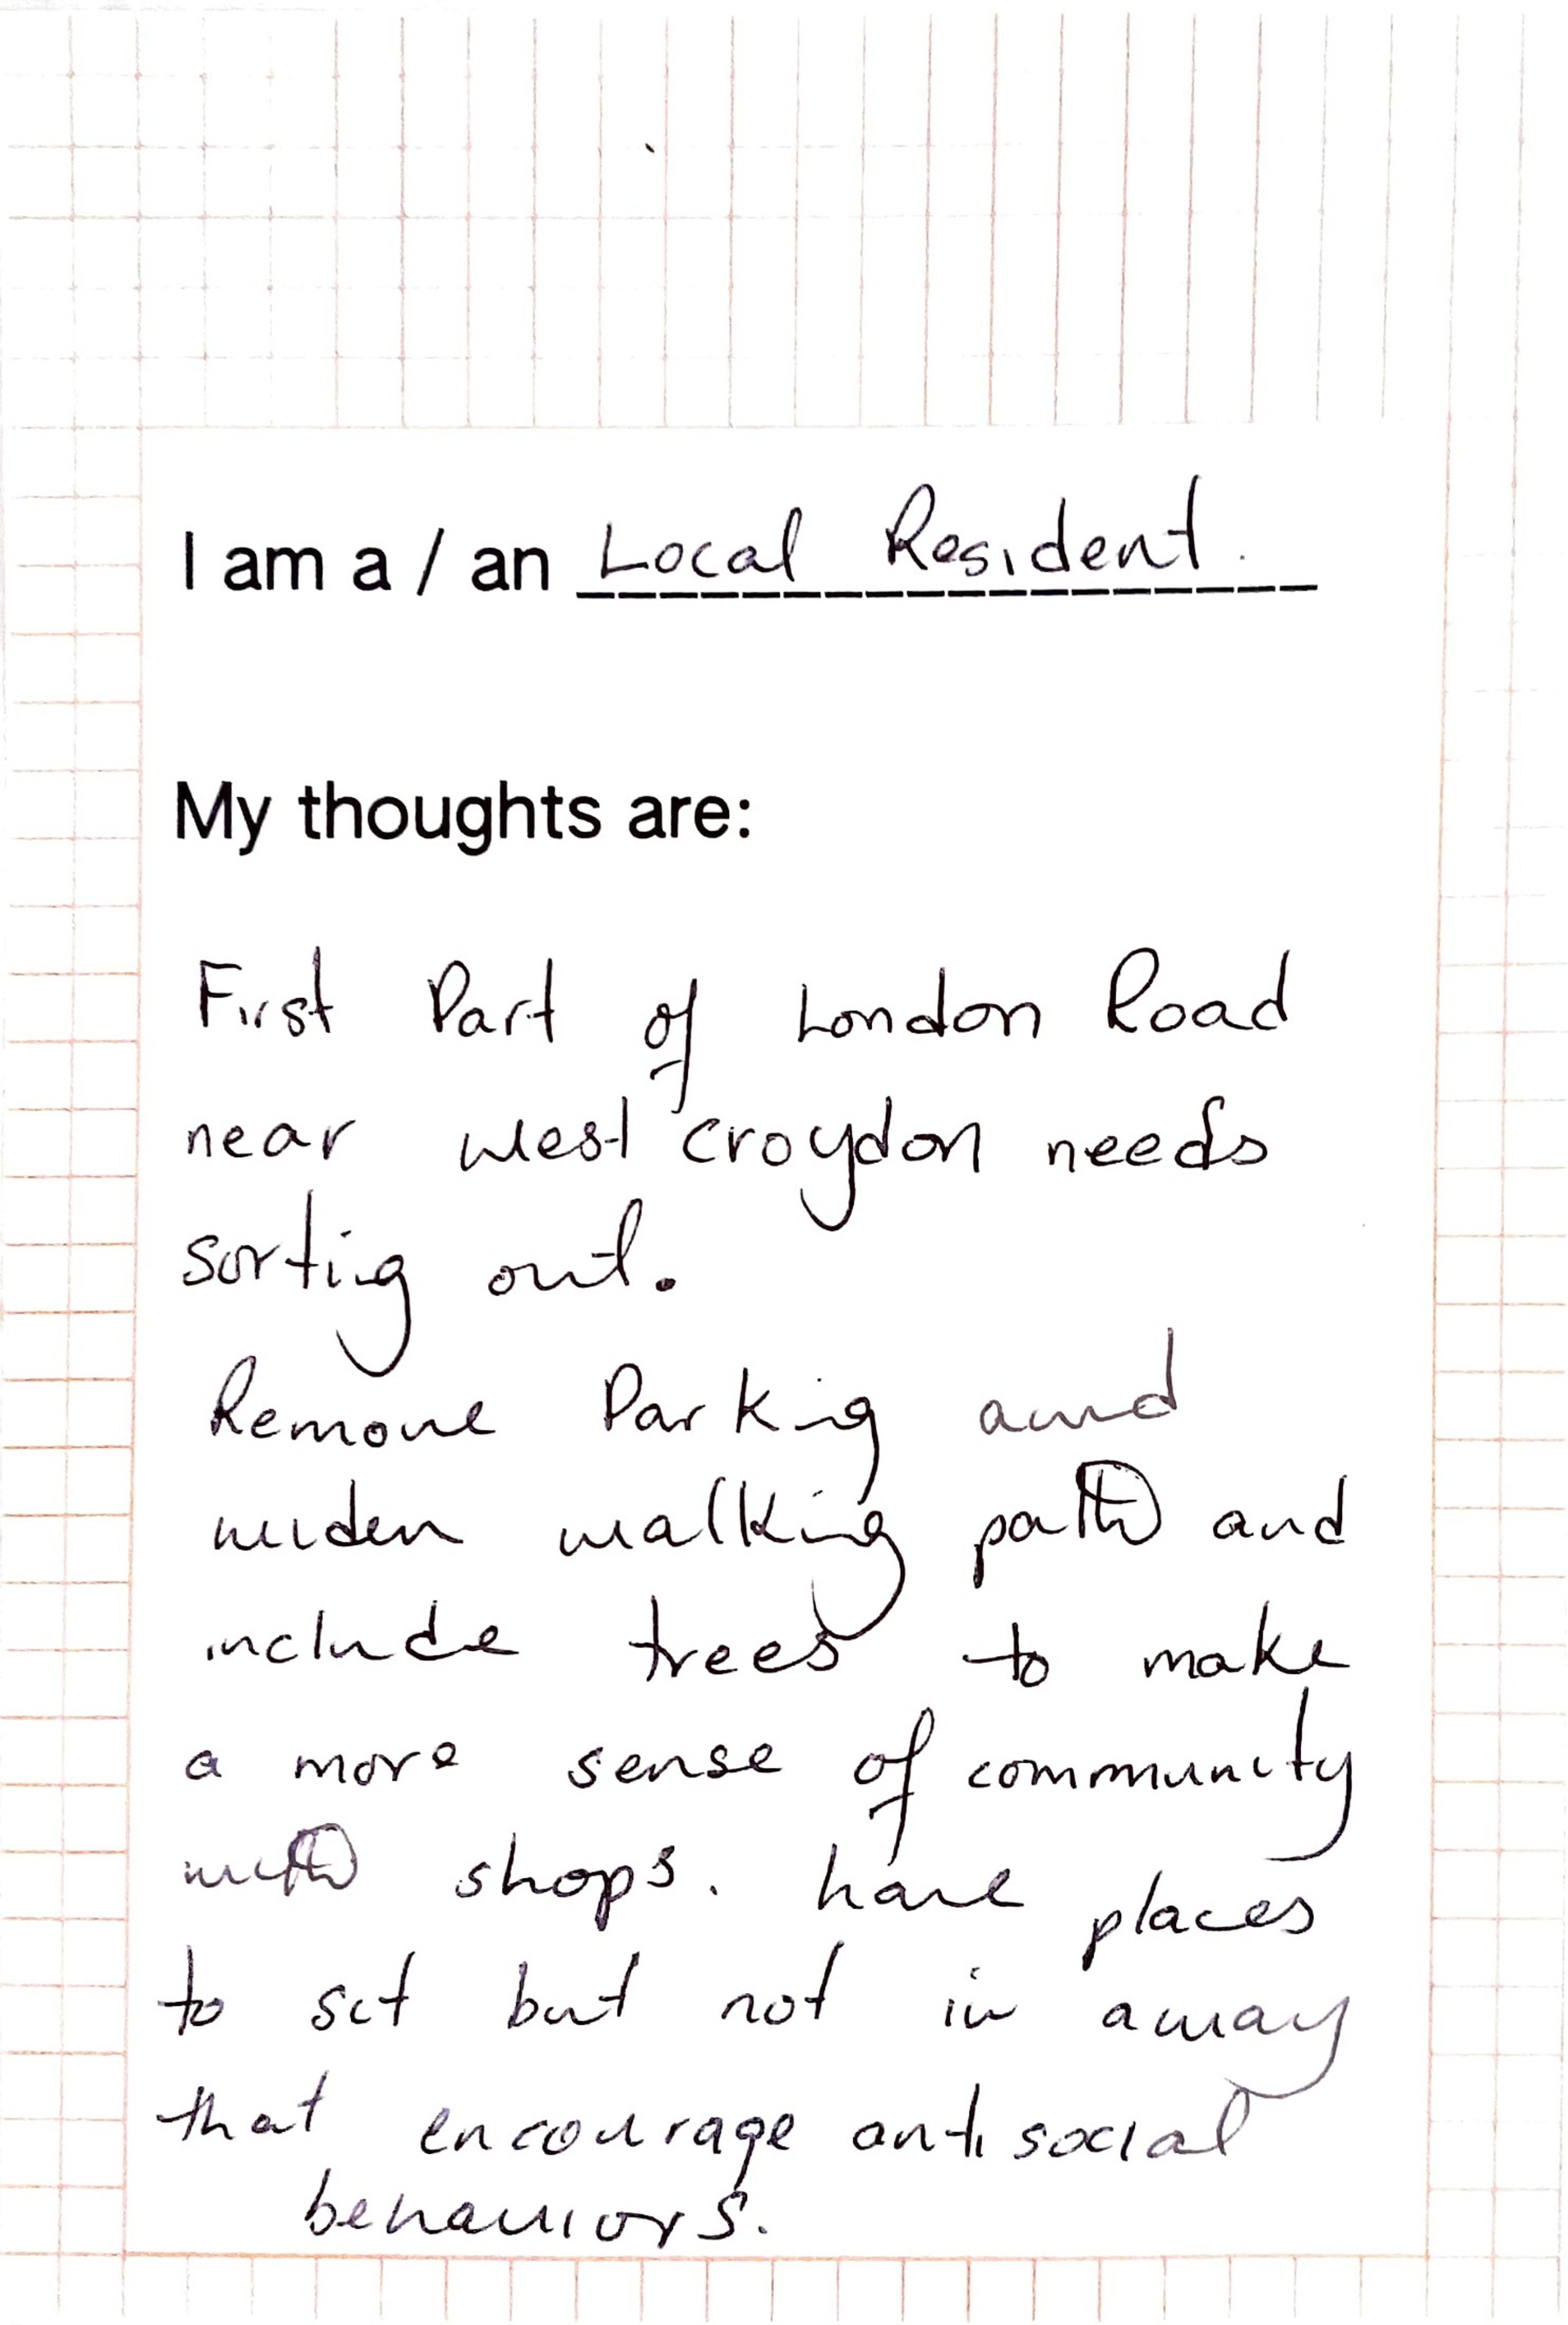 I am a / an Local Resident.
My thoughts are:
First Part of London Road
near west croydon needs
sorting out.
Remove Parking and
widen walking path and
include trees to make
a more sense of community
with shops. have places
to sit but not in away
that encourage anti social
behaviors.